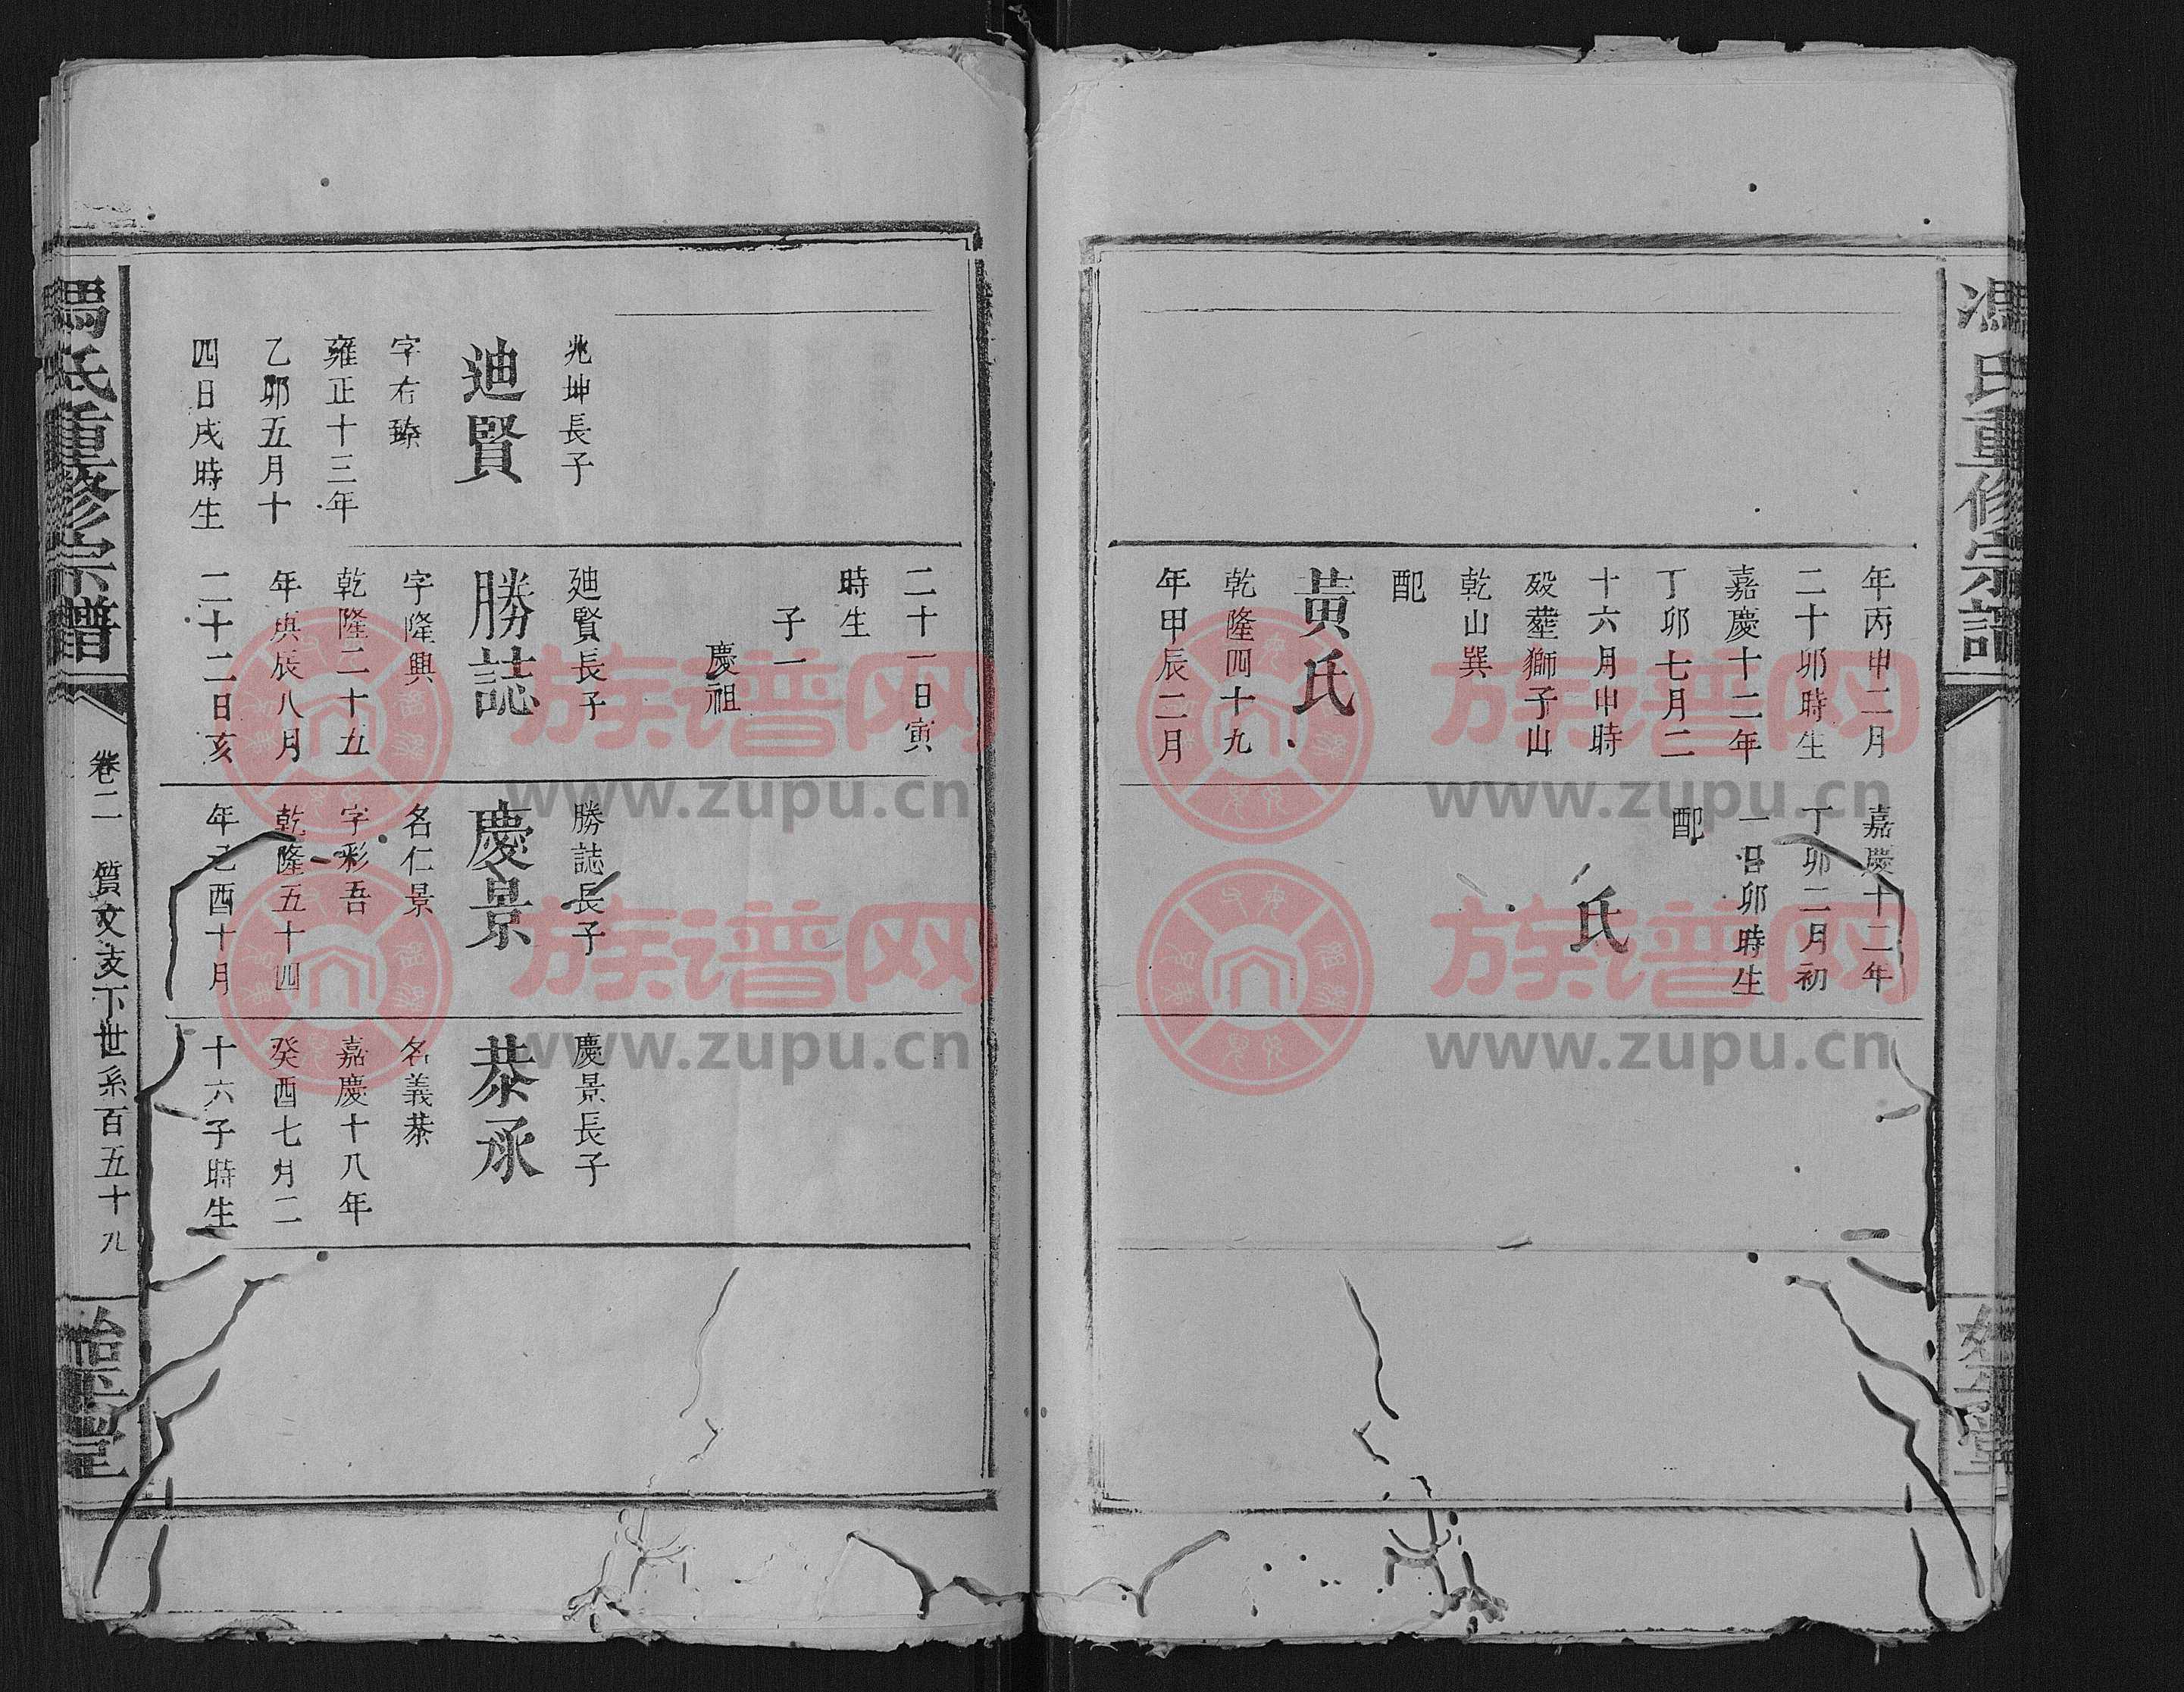 馮氏重修宗譜
年丙申二月
二十卯時生
嘉慶十二年
丁卯七月二
十六月申時
歿葬獅子山
乾山巽
配
黃氏
乾隆四十九
年甲辰二月
嘉慶十二年
丁卯二月初
一日卯時生
配
氏
兆坤長子
迪賢
字右臻
雍正十三年
乙卯五月十
四日戌時生
二十一日寅
時生
子一
慶祖
廸賢長子
勝誌
字隆興
乾隆二十五
年庚辰八月
二十二日亥
勝誌長子
慶景
名仁景
字彩吾
乾隆五十四
年己酉十月
慶景長子
恭承
名義恭
嘉慶十八年
癸酉七月二
十六子時生
馮氏重修宗譜
卷二 質文支下世系百五十九
族谱网
www.zupu.cn
族谱网
www.zupu.cn
族谱网
www.zupu.cn
族谱网
www.zupu.cn